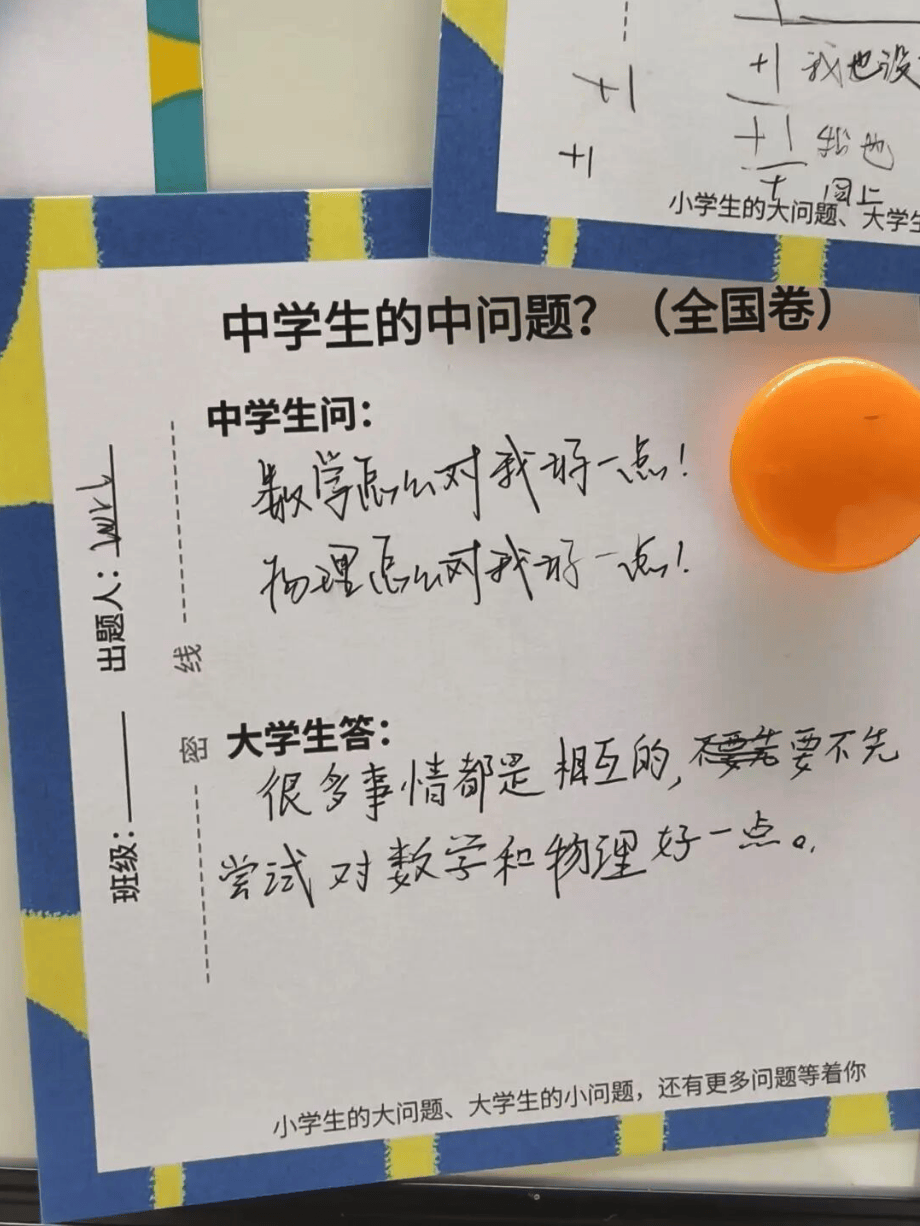 +1
+1
+1 我也没
+1 我也
+ 同上
小学生的大问题、大学生
中学生的中问题？（全国卷）
中学生问：
数学怎么对我好一点！
物理怎么对我好一点！
出题人：
线
密
班级：
大学生答：
很多事情都是相互的，不要先要不先
尝试对数学和物理好一点。
小学生的大问题、大学生的小问题，还有更多问题等着你